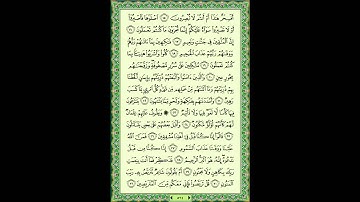 أَفَسِحْرٌ هَٰذَا أَمْ أَنتُمْ لَا تُبْصِرُونَ ١٥ اصْلَوْهَا فَاصْبِرُوا
أَوْ لَا تَصْبِرُوا سَوَاءٌ عَلَيْكُمْ إِنَّمَا تُجْزَوْنَ مَا كُنتُمْ تَعْمَلُونَ ١٦
إِنَّ الْمُتَّقِينَ فِي جَنَّاتٍ وَنَعِيمٍ ١٧ فَاكِهِينَ بِمَا آتَاهُمْ رَبُّهُمْ
وَوَقَاهُمْ رَبُّهُمْ عَذَابَ الْجَحِيمِ ١٨ كُلُوا وَاشْرَبُوا هَنِيئًا بِمَا كُنتُمْ
تَعْمَلُونَ ١٩ مُتَّكِئِينَ عَلَىٰ سُرُرٍ مَّصْفُوفَةٍ وَزَوَّجْنَاهُم
بِحُورٍ عِينٍ ٢٠ وَالَّذِينَ آمَنُوا وَاتَّبَعَتْهُمْ ذُرِّيَّتُهُم بِإِيمَانٍ أَلْحَقْنَا
بِهِمْ ذُرِّيَّتَهُمْ وَمَا أَلَتْنَاهُم مِّنْ عَمَلِهِم مِّن شَيْءٍ كُلُّ امْرِئٍ بِمَا كَسَبَ
رَهِينٌ ٢١ وَأَمْدَدْنَاهُم بِفَاكِهَةٍ وَلَحْمٍ مِّمَّا يَشْتَهُونَ ٢٢ يَتَنَازَعُونَ
فِيهَا كَأْسًا لَّا لَغْوٌ فِيهَا وَلَا تَأْثِيمٌ ٢٣ ۞ وَيَطُوفُ عَلَيْهِمْ غِلْمَانٌ
لَّهُمْ كَأَنَّهُمْ لُؤْلُؤٌ مَّكْنُونٌ ٢٤ وَأَقْبَلَ بَعْضُهُمْ عَلَىٰ بَعْضٍ يَتَسَاءَلُونَ
٢٥ قَالُوا إِنَّا كُنَّا قَبْلُ فِي أَهْلِنَا مُشْفِقِينَ ٢٦ فَمَنَّ اللَّهُ
عَلَيْنَا وَوَقَانَا عَذَابَ السَّمُومِ ٢٧ إِنَّا كُنَّا مِن قَبْلُ
نَدْعُوهُ إِنَّهُ هُوَ الْبَرُّ الرَّحِيمُ ٢٨ فَذَكِّرْ فَمَا أَنتَ بِنِعْمَتِ
رَبِّكَ بِكَاهِنٍ وَلَا مَجْنُونٍ ٢٩ أَمْ يَقُولُونَ شَاعِرٌ نَّتَرَبَّصُ بِهِ رَيْبَ
الْمَنُونِ ٣٠ قُلْ تَرَبَّصُوا فَإِنِّي مَعَكُم مِّنَ الْمُتَرَبِّصِينَ ٣١